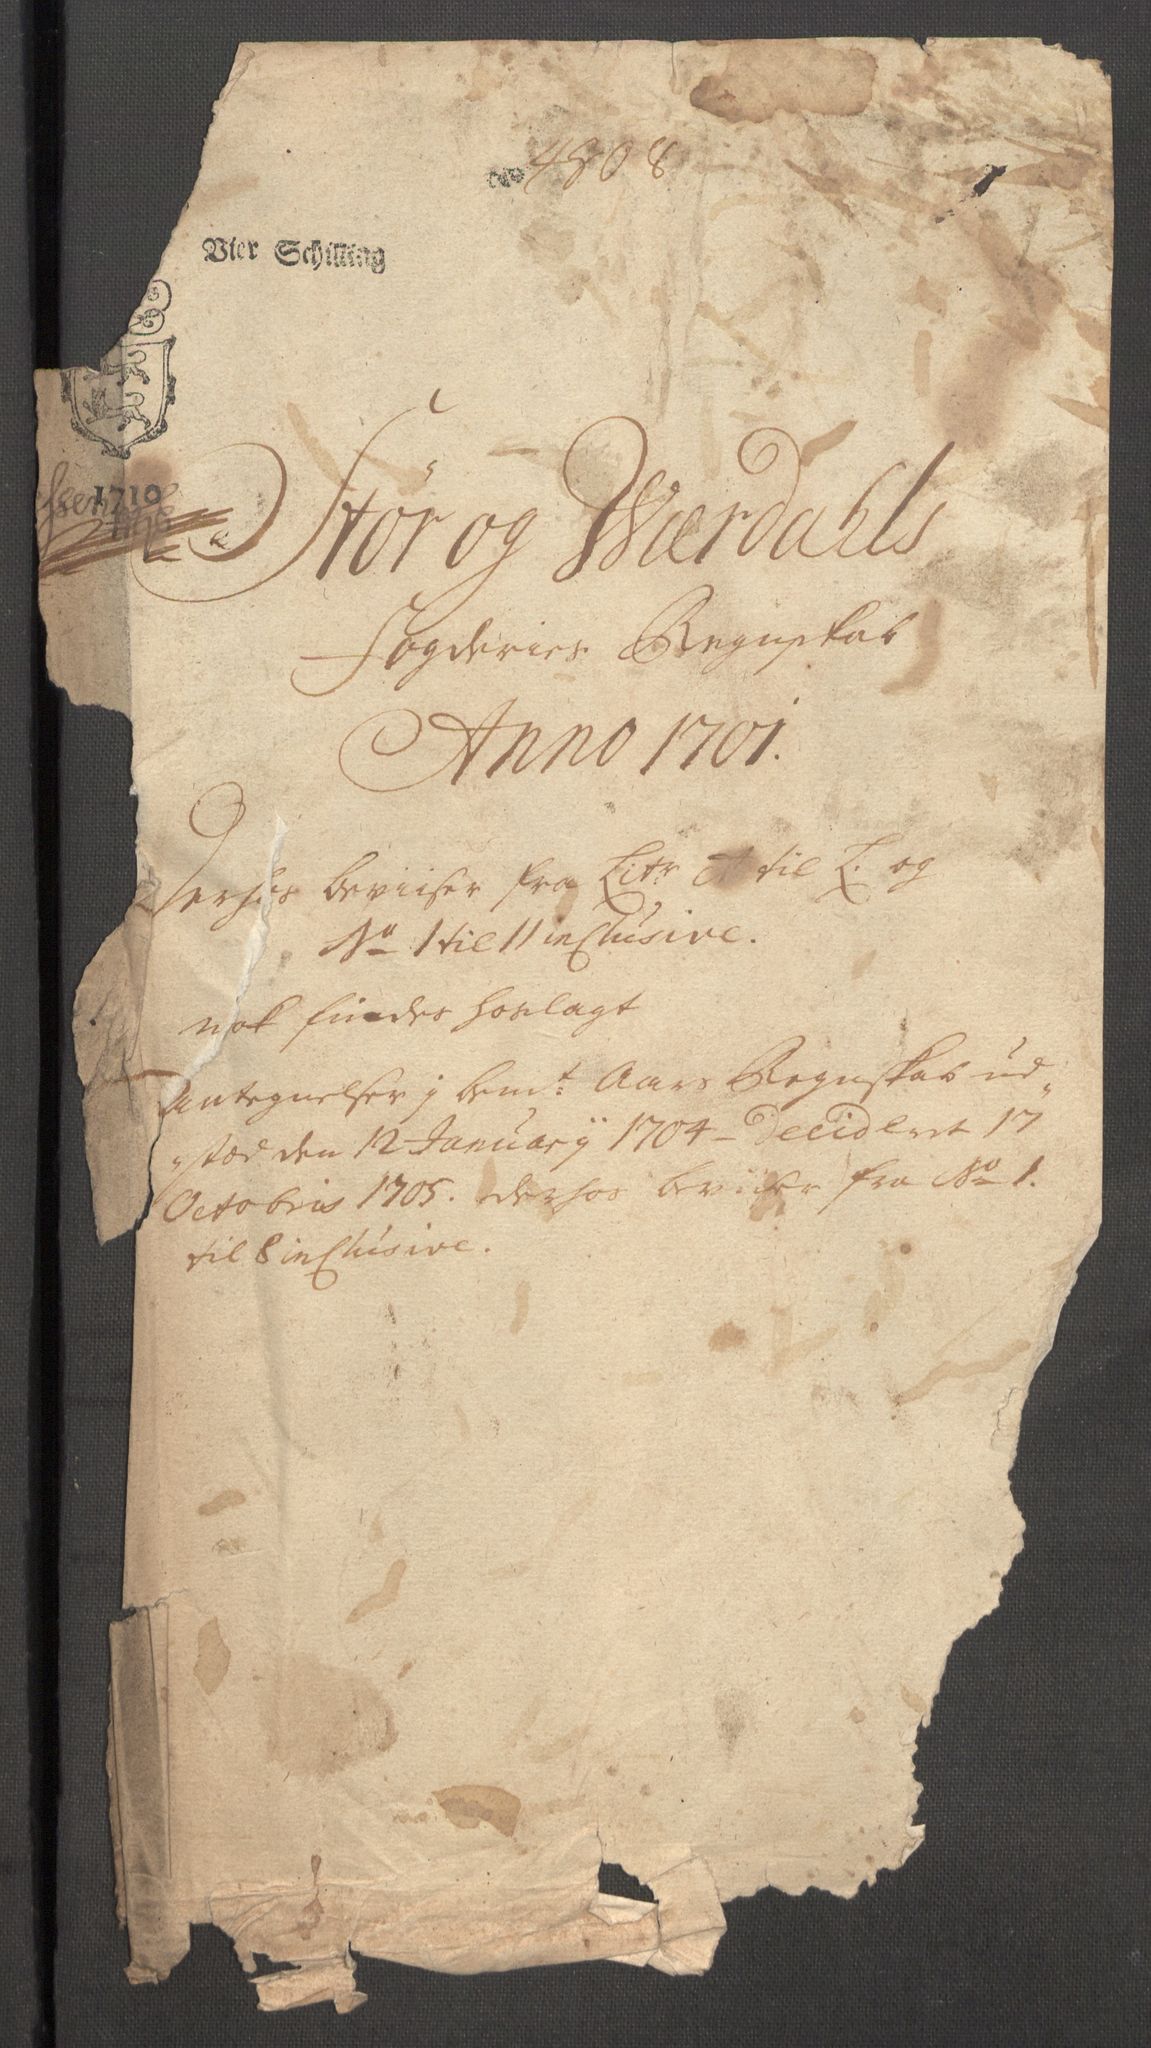 4808
Vier Schilling
1710
Stör og Værdahls
Fogderies Regnskab
Anno 1701.
Derhos beviiser fra Litr A til L. og
No 1 til 11 inclusive.
nok findes hoslagt
Antegnelser j bemt: Aars Regnskab ud„
„stæd den 12 Januarÿ 1704 – Decideret 17
Octobris 1705. derhos beviiser fra No 1.
til 8 inclusive.